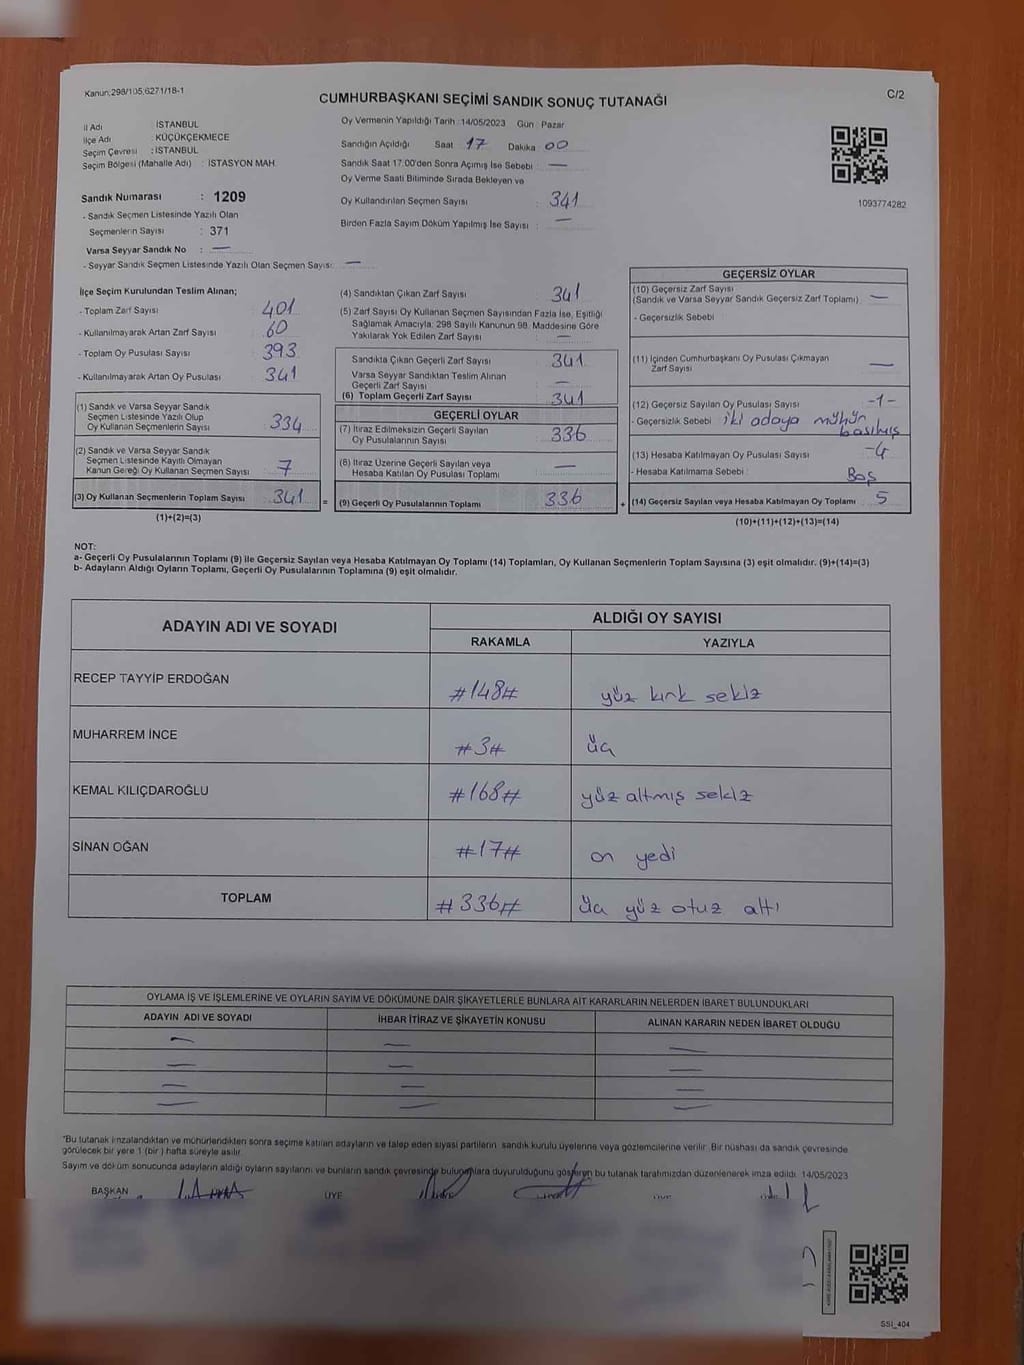 Kanun:298/105,6271/18-1
CUMHURBAŞKANI SEÇİMİ SANDIK SONUÇ TUTANAĞI
C/2
İl Adı : İSTANBUL
İlçe Adı : KÜÇÜKÇEKMECE
Seçim Çevresi : İSTANBUL
Seçim Bölgesi (Mahalle Adı) : İSTASYON MAH.
Sandık Numarası : 1209
- Sandık Seçmen Listesinde Yazılı Olan
Seçmenlerin Sayısı : 371
Varsa Seyyar Sandık No : —
- Seyyar Sandık Seçmen Listesinde Yazılı Olan Seçmen Sayısı: —
Oy Vermenin Yapıldığı Tarih :14/05/2023 Gün : Pazar
Sandığın Açıldığı Saat 17 Dakika 00
Sandık Saat 17:00'den Sonra Açımış İse Sebebi : —
Oy Verme Saati Bitiminde Sırada Bekleyen ve
Oy Kullandırılan Seçmen Sayısı : 341
Birden Fazla Sayım Döküm Yapılmış İse Sayısı : —
1093774282
İlçe Seçim Kurulundan Teslim Alınan;
- Toplam Zarf Sayısı : 401
- Kullanılmayarak Artan Zarf Sayısı : 60
- Toplam Oy Pusulası Sayısı : 393
- Kullanılmayarak Artan Oy Pusulası : 341
(1) Sandık ve Varsa Seyyar Sandık
Seçmen Listesinde Yazılı Olup
Oy Kullanan Seçmenlerin Sayısı : 334
(2) Sandık ve Varsa Seyyar Sandık
Seçmen Listesinde Kayıtlı Olmayan
Kanun Gereği Oy Kullanan Seçmen Sayısı : 7
(3) Oy Kullanan Seçmenlerin Toplam Sayısı : 341 =
(1)+(2)=(3)
(4) Sandıktan Çıkan Zarf Sayısı : 341
(5) Zarf Sayısı Oy Kullanan Seçmen Sayısından Fazla İse, Eşitliği
Sağlamak Amacıyla; 298 Sayılı Kanunun 98. Maddesine Göre
Yakılarak Yok Edilen Zarf Sayısı : —
Sandıkta Çıkan Geçerli Zarf Sayısı : 341
Varsa Seyyar Sandıktan Teslim Alınan
Geçerli Zarf Sayısı : —
(6) Toplam Geçerli Zarf Sayısı : 341
GEÇERLİ OYLAR
(7) İtiraz Edilmeksizin Geçerli Sayılan
Oy Pusulasının Sayısı : 336
(8) İtiraz Üzerine Geçerli Sayılan veya
Hesaba Katılan Oy Pusulası Toplamı : —
(9) Geçerli Oy Pusulalarının Toplamı : 336 +
GEÇERSİZ OYLAR
(10) Geçersiz Zarf Sayısı
(Sandık ve Varsa Seyyar Sandık Geçersiz Zarf Toplamı) : —
- Geçersizlik Sebebi :
(11) İçinden Cumhurbaşkanı Oy Pusulası Çıkmayan
Zarf Sayısı : —
(12) Geçersiz Sayılan Oy Pusulası Sayısı : -1-
- Geçersizlik Sebebi : iki adaya mühür
basılmış
(13) Hesaba Katılmayan Oy Pusulası Sayısı : -4
- Hesaba Katılmama Sebebi : Boş
(14) Geçersiz Sayılan veya Hesaba Katılmayan Oy Toplamı : 5
(10)+(11)+(12)+(13)=(14)
NOT:
a- Geçerli Oy Pusulalarının Toplamı (9) ile Geçersiz Sayılan veya Hesaba Katılmayan Oy Toplamı (14) Toplamları, Oy Kullanan Seçmenlerin Toplam Sayısına (3) eşit olmalıdır. (9)+(14)=(3)
b- Adayların Aldığı Oyların Toplamı, Geçerli Oy Pusulalarının Toplamına (9) eşit olmalıdır.
ADAYIN ADI VE SOYADI
ALDIĞI OY SAYISI
RAKAMLA YAZIYLA
RECEP TAYYİP ERDOĞAN #148# yüz kırk sekiz
MUHARREM İNCE #3# üç
KEMAL KILIÇDAROĞLU #168# yüz altmış sekiz
SİNAN OĞAN #17# on yedi
TOPLAM #336# üç yüz otuz altı
OYLAMA İŞ VE İŞLEMLERİNE VE OYLARIN SAYIM VE DÖKÜMÜNE DAİR ŞİKAYETLERLE BUNLARA AİT KARARLARIN NELERDEN İBARET BULUNDUKLARI
ADAYIN ADI VE SOYADI İHBAR İTİRAZ VE ŞİKAYETİN KONUSU ALINAN KARARIN NEDEN İBARET OLDUĞU
— — —
— — —
— — —
— — —
*Bu tutanak imzalandıktan ve mühürlendikten sonra seçime katılan adayların ve talep eden siyasi partilerin sandık kurulu üyelerine veya gözlemcilerine verilir. Bir nüshası da sandık çevresinde
görülecek bir yere 1 (bir) hafta süreyle asılır.
Sayım ve döküm sonucunda adayların aldığı oyların sayılarını ve bunların sandık çevresinde bulunanlara duyurulduğunu gösteren bu tutanak tarafımızdan düzenlenerek imza edildi. 14/05/2023
BAŞKAN ÜYE
SSI_404